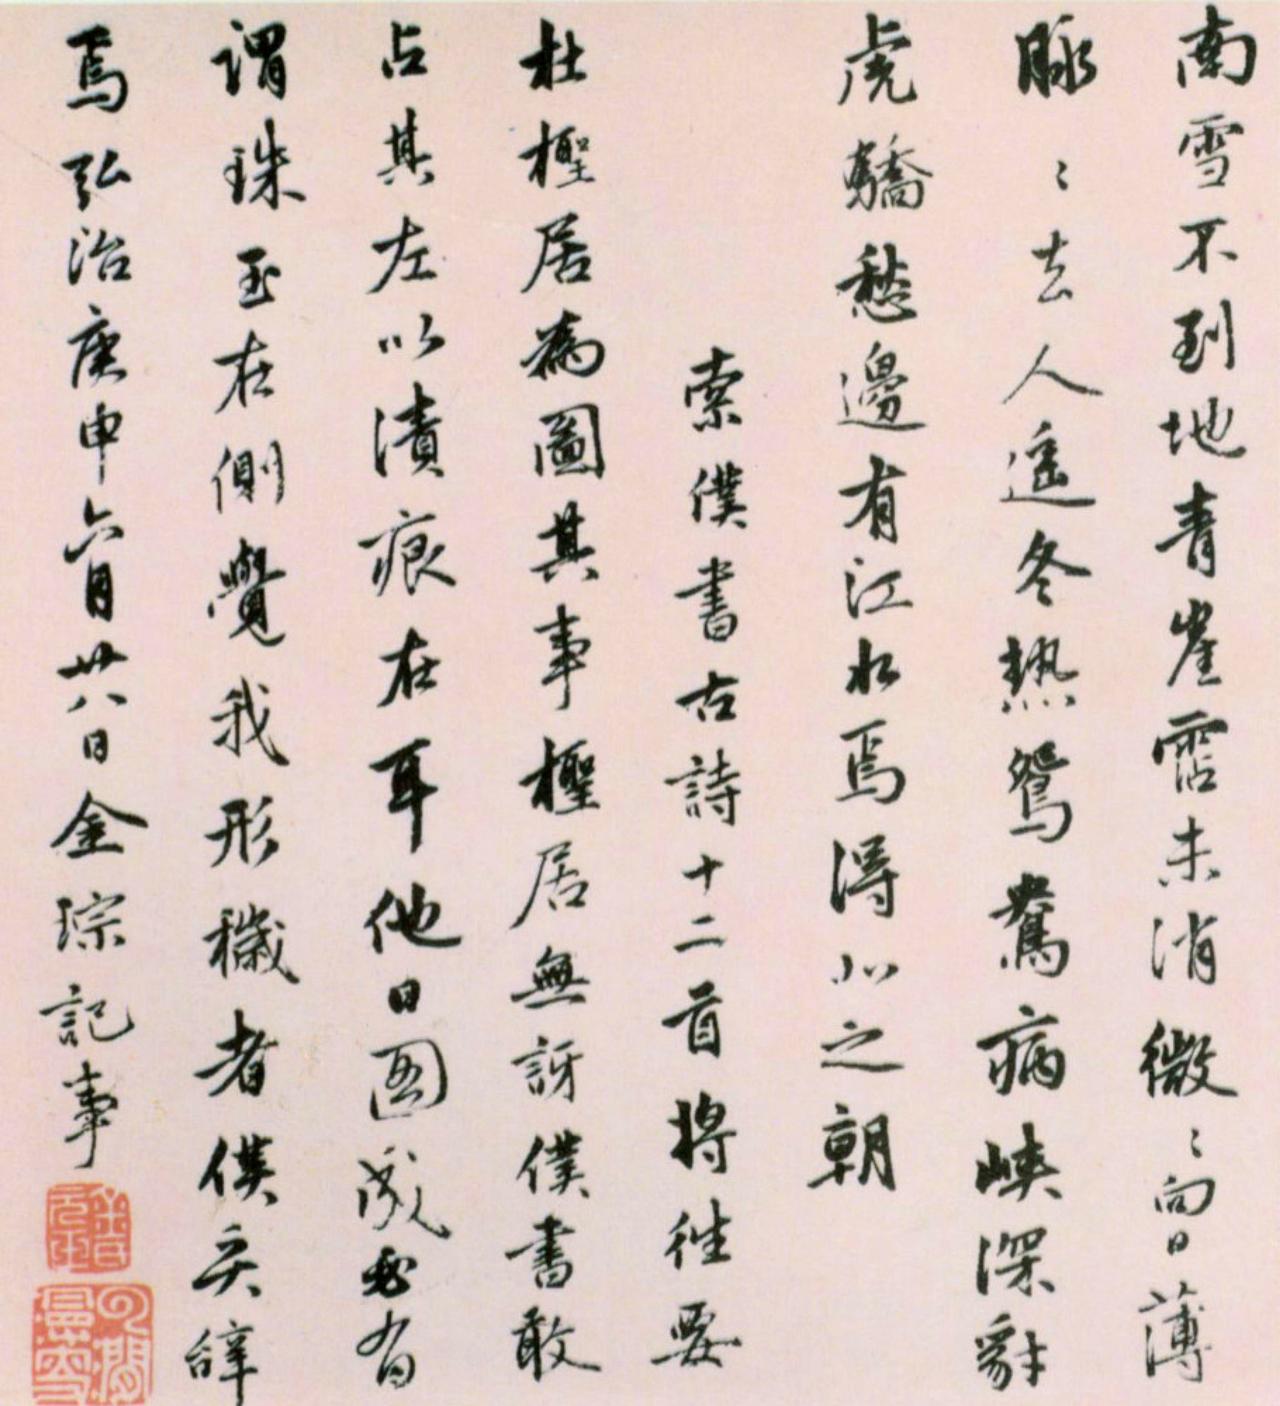 南雪不到地青崖霑未消微〻向日薄
脉〻去人遥冬熱鴛鴦病峡深豺
虎驕愁邊有江水焉得北之朝
索僕書古詩十二首將往要
杜檉居為圖其事檉居無訝僕書敢
占其左以漬痕在耳他日圖成必有
謂珠玉在側覺我形穢者僕亦辞
焉弘治庚申六月廿八日金琮記事